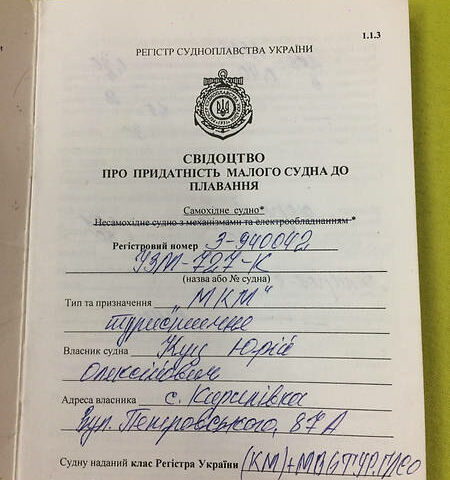 1.1.3
РЕГІСТР СУДНОПЛАВСТВА УКРАЇНИ
СВІДОЦТВО
ПРО ПРИДАТНІСТЬ МАЛОГО СУДНА ДО
ПЛАВАННЯ
Самохідне судно*
Несамохідне судно з механізмами та електрообладнанням *
Регістровий номер 3-940042
УЗМ-727-К
(назва або № судна)
Тип та призначення „МКМ"
туристичне
Власник судна Куц Юрій
Олексійович
Адреса власника с. Кирилівка
вул. 87А
Судну наданий клас Регістра України (КМ)